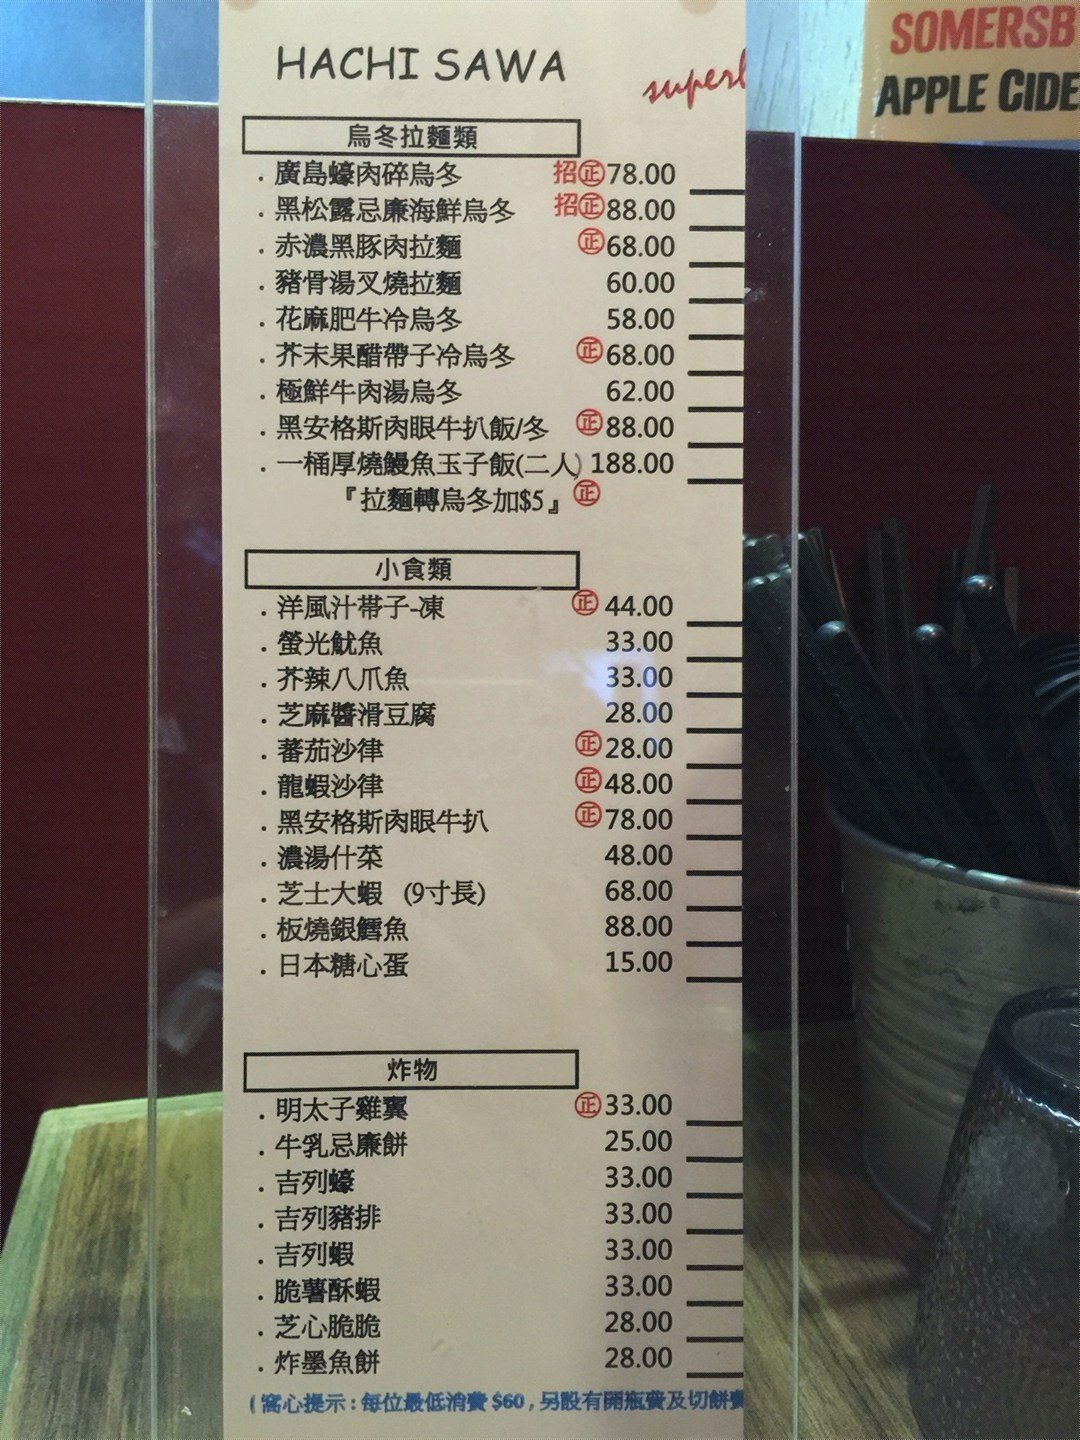 HACHI SAWA
SOMERSB
APPLE CIDE
烏冬拉麵類
. 廣島蠔肉碎烏冬 招正78.00
. 黑松露忌廉海鮮烏冬 招正88.00
. 赤濃黑豚肉拉麵 正68.00
. 豬骨湯叉燒拉麵 60.00
. 花麻肥牛冷烏冬 58.00
. 芥末果醋帶子冷烏冬 正68.00
. 極鮮牛肉湯烏冬 62.00
. 黑安格斯肉眼牛扒飯/冬 正88.00
. 一桶厚燒鰻魚玉子飯(二人) 188.00
『拉麵轉烏冬加$5』正
小食類
. 洋風汁帶子-凍 正 44.00
. 螢光魷魚 33.00
. 芥辣八爪魚 33.00
. 芝麻醬滑豆腐 28.00
. 蕃茄沙律 正28.00
. 龍蝦沙律 正48.00
. 黑安格斯肉眼牛扒 正78.00
. 濃湯什菜 48.00
. 芝士大蝦 (9寸長) 68.00
. 板燒銀鱈魚 88.00
. 日本糖心蛋 15.00
炸物
. 明太子雞翼 正33.00
. 牛乳忌廉餅 25.00
. 吉列蠔 33.00
. 吉列豬排 33.00
. 吉列蝦 33.00
. 脆薯酥蝦 33.00
. 芝心脆脆 28.00
. 炸墨魚餅 28.00
( 窩心提示 : 每位最低消費 $60 , 另設有開瓶費及切餅費